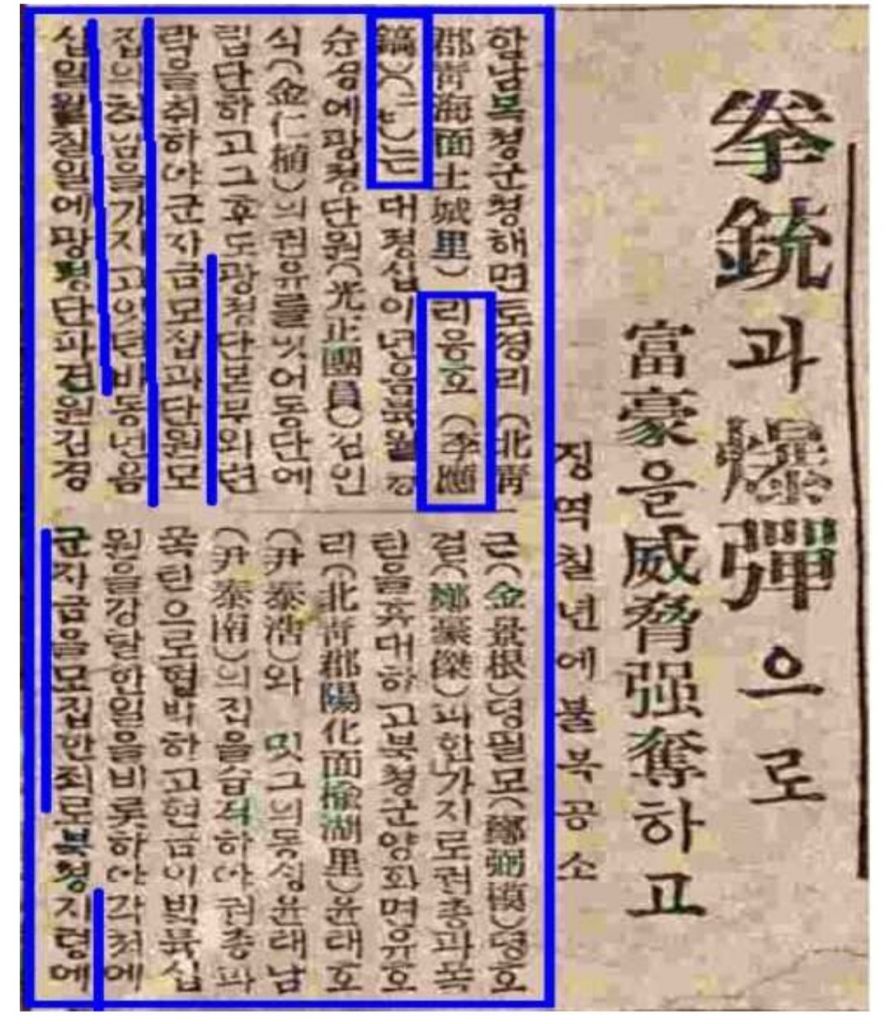 拳銃과爆彈으로
富豪을威脅强奪하고
징역칠년에불복공소
함남북청군청해면토성리 (北靑
郡靑海面土城里) 리응호 (李應
鎬)(二一)는 대정십이년음륙월
에광정단원(光正團員)김인
식(金仁植)의권유를밧어동단에
립단하고그후도광정단본부와련
락을취하야군자금모집과단원모
집의책임을가지고잇던바동년음
십일월칠일에광정단파견원김경
근(金景根)뎡필모(鄭弼模)뎡호
걸(鄭豪傑)과한가지로권총과폭
탄을휴대하고북청군양화면유호
리(北靑郡陽化面楡湖里)윤태호
(尹泰浩)와 밋그의동생윤태남
(尹泰南)의집을습격하야권총과
폭탄으로협박하고현금이백륙십
원을강탈한일을비롯하야각처에
군자금을모집한죄로북청지텽에